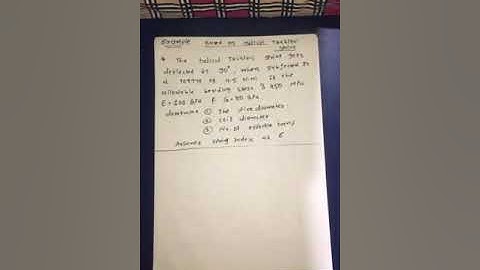 Example Based on Helical Torsion
Spring
The helical Torsion spring gets
deflected by 90°, when subjected to
a torque of 4.5 N.m. If the
allowable bending stress is 450 MPa
E = 200 GPa & G = 80 GPa
determine ① The wire diameter
② coil diameter
③ No. of effective turns
Assume spring index as 6